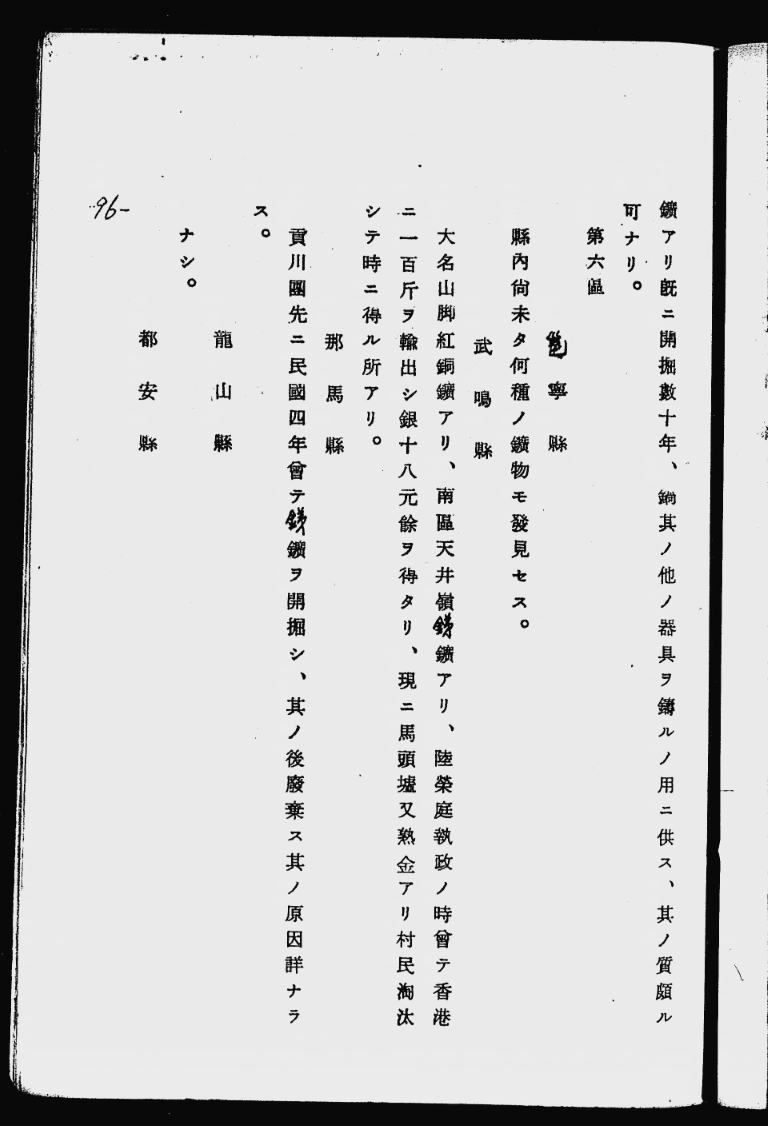 鑛アリ既ニ開掘數十年、鍋其ノ他ノ器具ヲ鑄ルノ用ニ供ス、其ノ質頗ル
可ナリ。
第六區
邕寧縣
縣內尙未タ何種ノ鑛物モ發見セス。
武鳴縣
大名山脚紅銅鑛アリ、南區天井嶺銻鑛アリ、陸榮庭執政ノ時曾テ香港
ニ一百斤ヲ輸出シ銀十八元餘ヲ得タリ、現ニ馬頭墟又熟金アリ村民淘汰
シテ時ニ得ル所アリ。
那馬縣
貢川團先ニ民國四年曾テ銻鑛ヲ開掘シ、其ノ後廢棄ス其ノ原因詳ナラ
ス。
龍山縣
ナシ。
都安縣
-96-